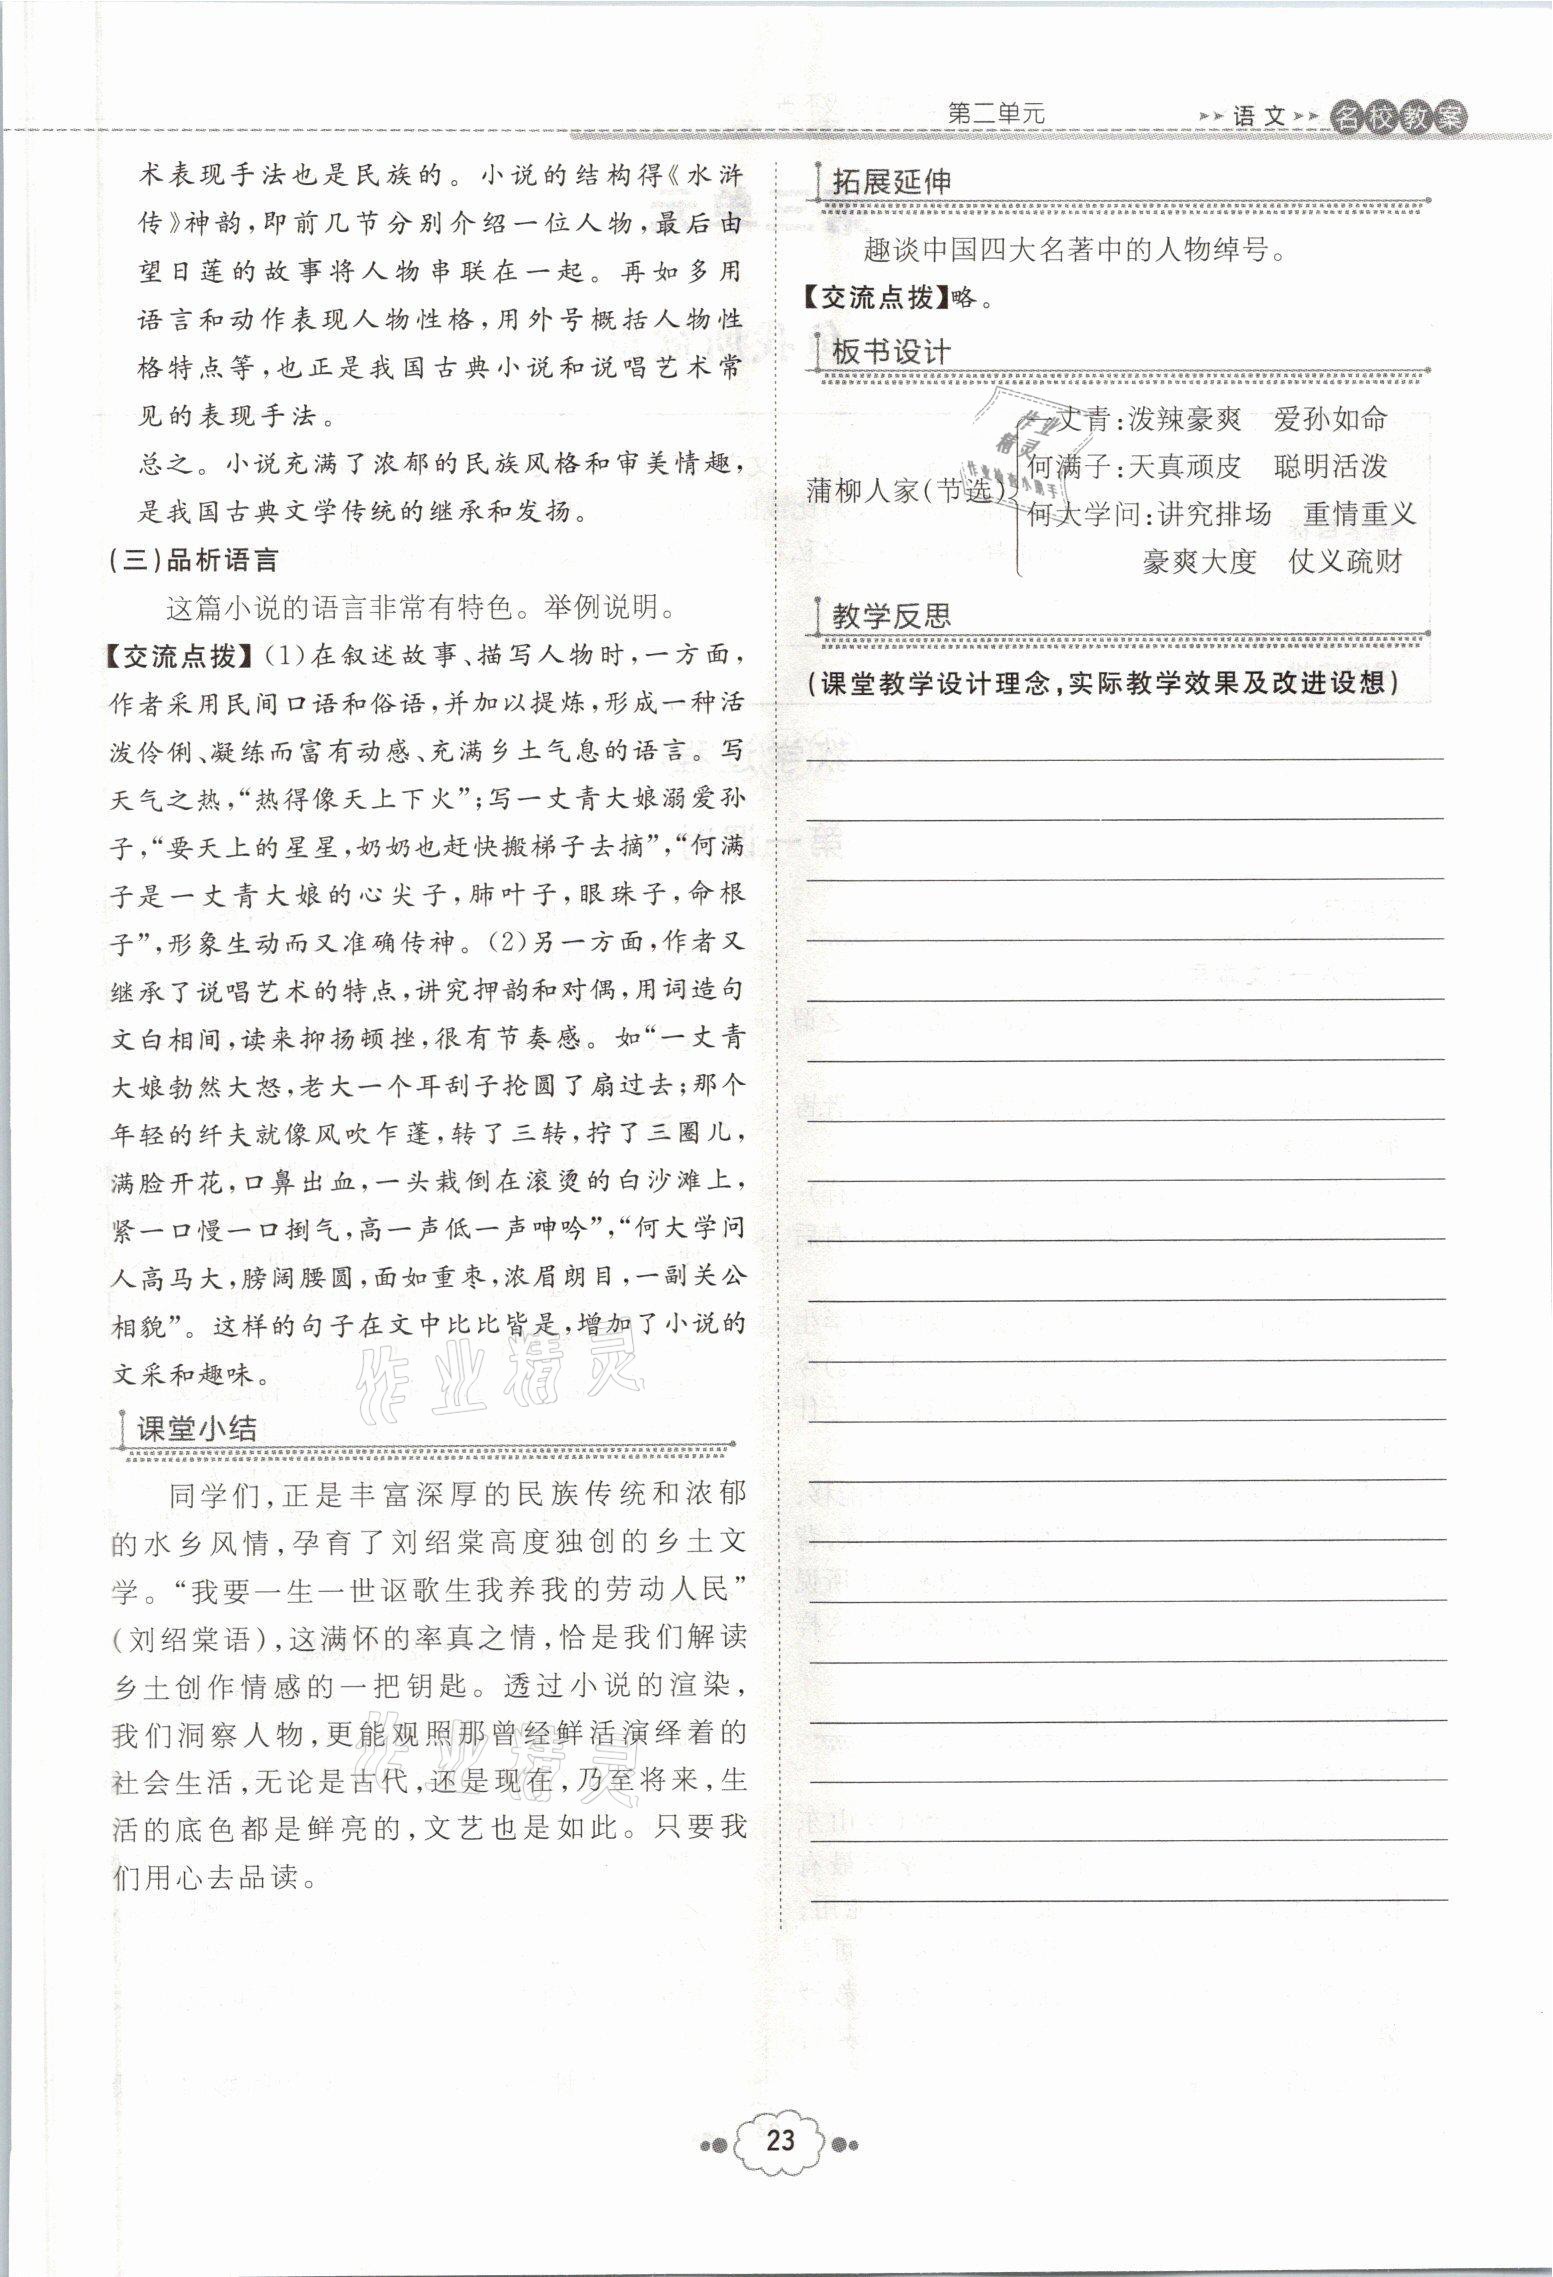 第二单元
语文
名校教案
术表现手法也是民族的。小说的结构得《水浒
传》神韵,即前几节分别介绍一位人物,最后由
望日莲的故事将人物串联在一起。再如多用
语言和动作表现人物性格,用外号概括人物性
格特点等,也正是我国古典小说和说唱艺术常
见的表现手法。
总之。小说充满了浓郁的民族风格和审美情趣,
是我国古典文学传统的继承和发扬。
(三)品析语言
这篇小说的语言非常有特色。举例说明。
【交流点拨】(1)在叙述故事、描写人物时,一方面,
作者采用民间口语和俗语,并加以提炼,形成一种活
泼伶俐、凝练而富有动感、充满乡土气息的语言。写
天气之热,“热得像天上下火”;写一丈青大娘溺爱孙
子,“要天上的星星,奶奶也赶快搬梯子去摘”,“何满
子是一丈青大娘的心尖子,肺叶子,眼珠子,命根
子”,形象生动而又准确传神。(2)另一方面,作者又
继承了说唱艺术的特点,讲究押韵和对偶,用词造句
文白相间,读来抑扬顿挫,很有节奏感。如“一丈青
大娘勃然大怒,老大一个耳刮子抡圆了扇过去;那个
年轻的纤夫就像风吹乍蓬,转了三转,拧了三圈儿,
满脸开花,口鼻出血,一头栽倒在滚烫的白沙滩上,
紧一口慢一口捯气,高一声低一声呻吟”,“何大学问
人高马大,膀阔腰圆,面如重枣,浓眉朗目,一副关公
相貌”。这样的句子在文中比比皆是,增加了小说的
文采和趣味。
课堂小结
同学们,正是丰富深厚的民族传统和浓郁
的水乡风情,孕育了刘绍棠高度独创的乡土文
学。“我要一生一世讴歌生我养我的劳动人民”
(刘绍棠语),这满怀的率真之情,恰是我们解读
乡土创作情感的一把钥匙。透过小说的渲染,
我们洞察人物,更能观照那曾经鲜活演绎着的
社会生活,无论是古代,还是现在,乃至将来,生
活的底色都是鲜亮的,文艺也是如此。只要我
们用心去品读。
拓展延伸
趣谈中国四大名著中的人物绰号。
【交流点拨】略。
板书设计
一丈青:泼辣豪爽 爱孙如命
何满子:天真顽皮 聪明活泼
蒲柳人家(节选)
何大学问:讲究排场 重情重义
豪爽大度 仗义疏财
教学反思
(课堂教学设计理念,实际教学效果及改进设想)
作业精灵
作业精灵
作业
精灵
23